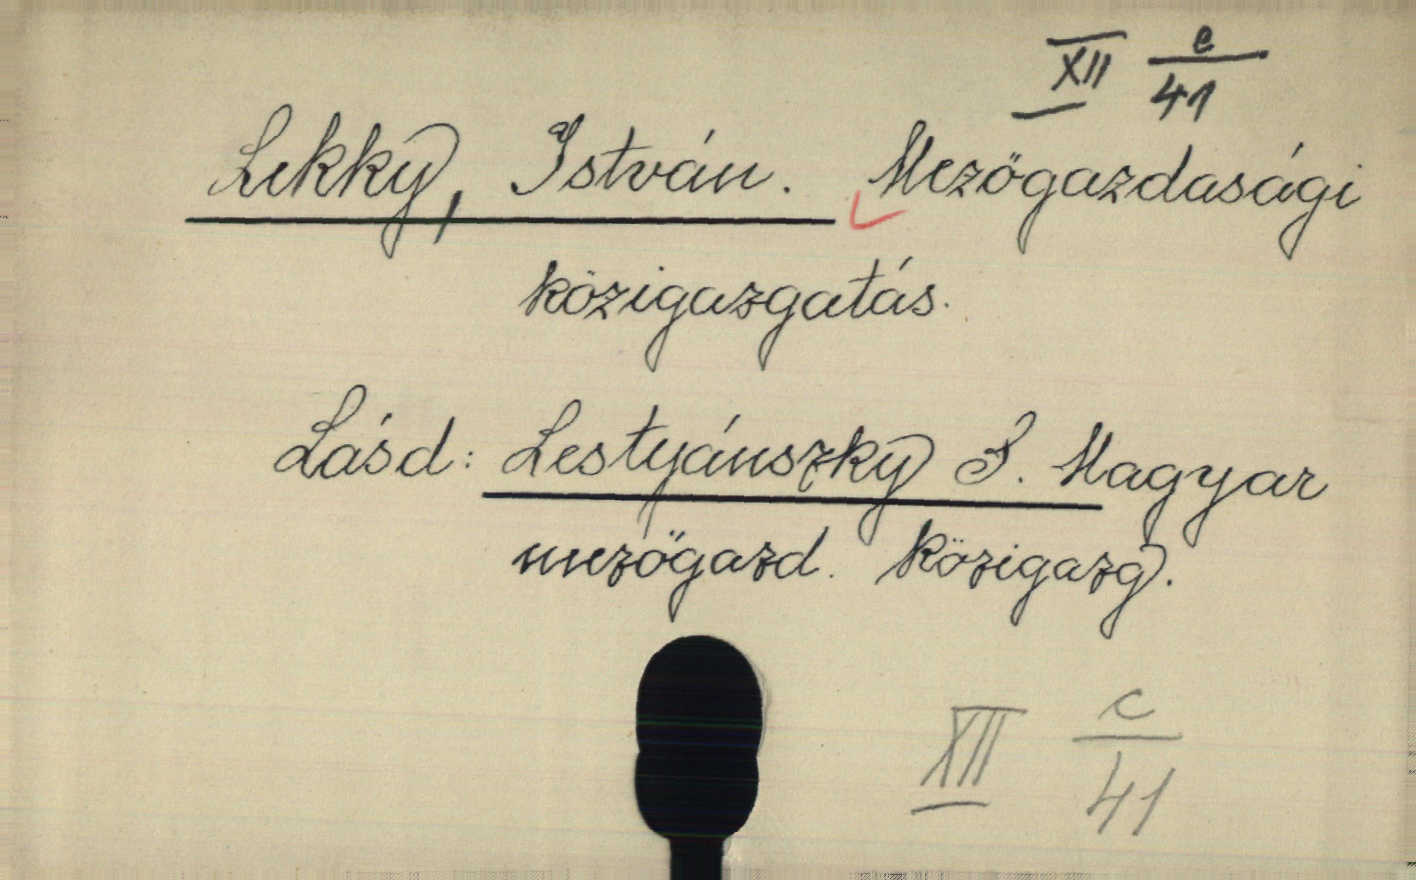 XII e/41
Lekky, István. Mezőgazdasági
közigazgatás.
Lásd: Lestyánszky S. Magyar
mezőgazd. közigazg.
XII c/41